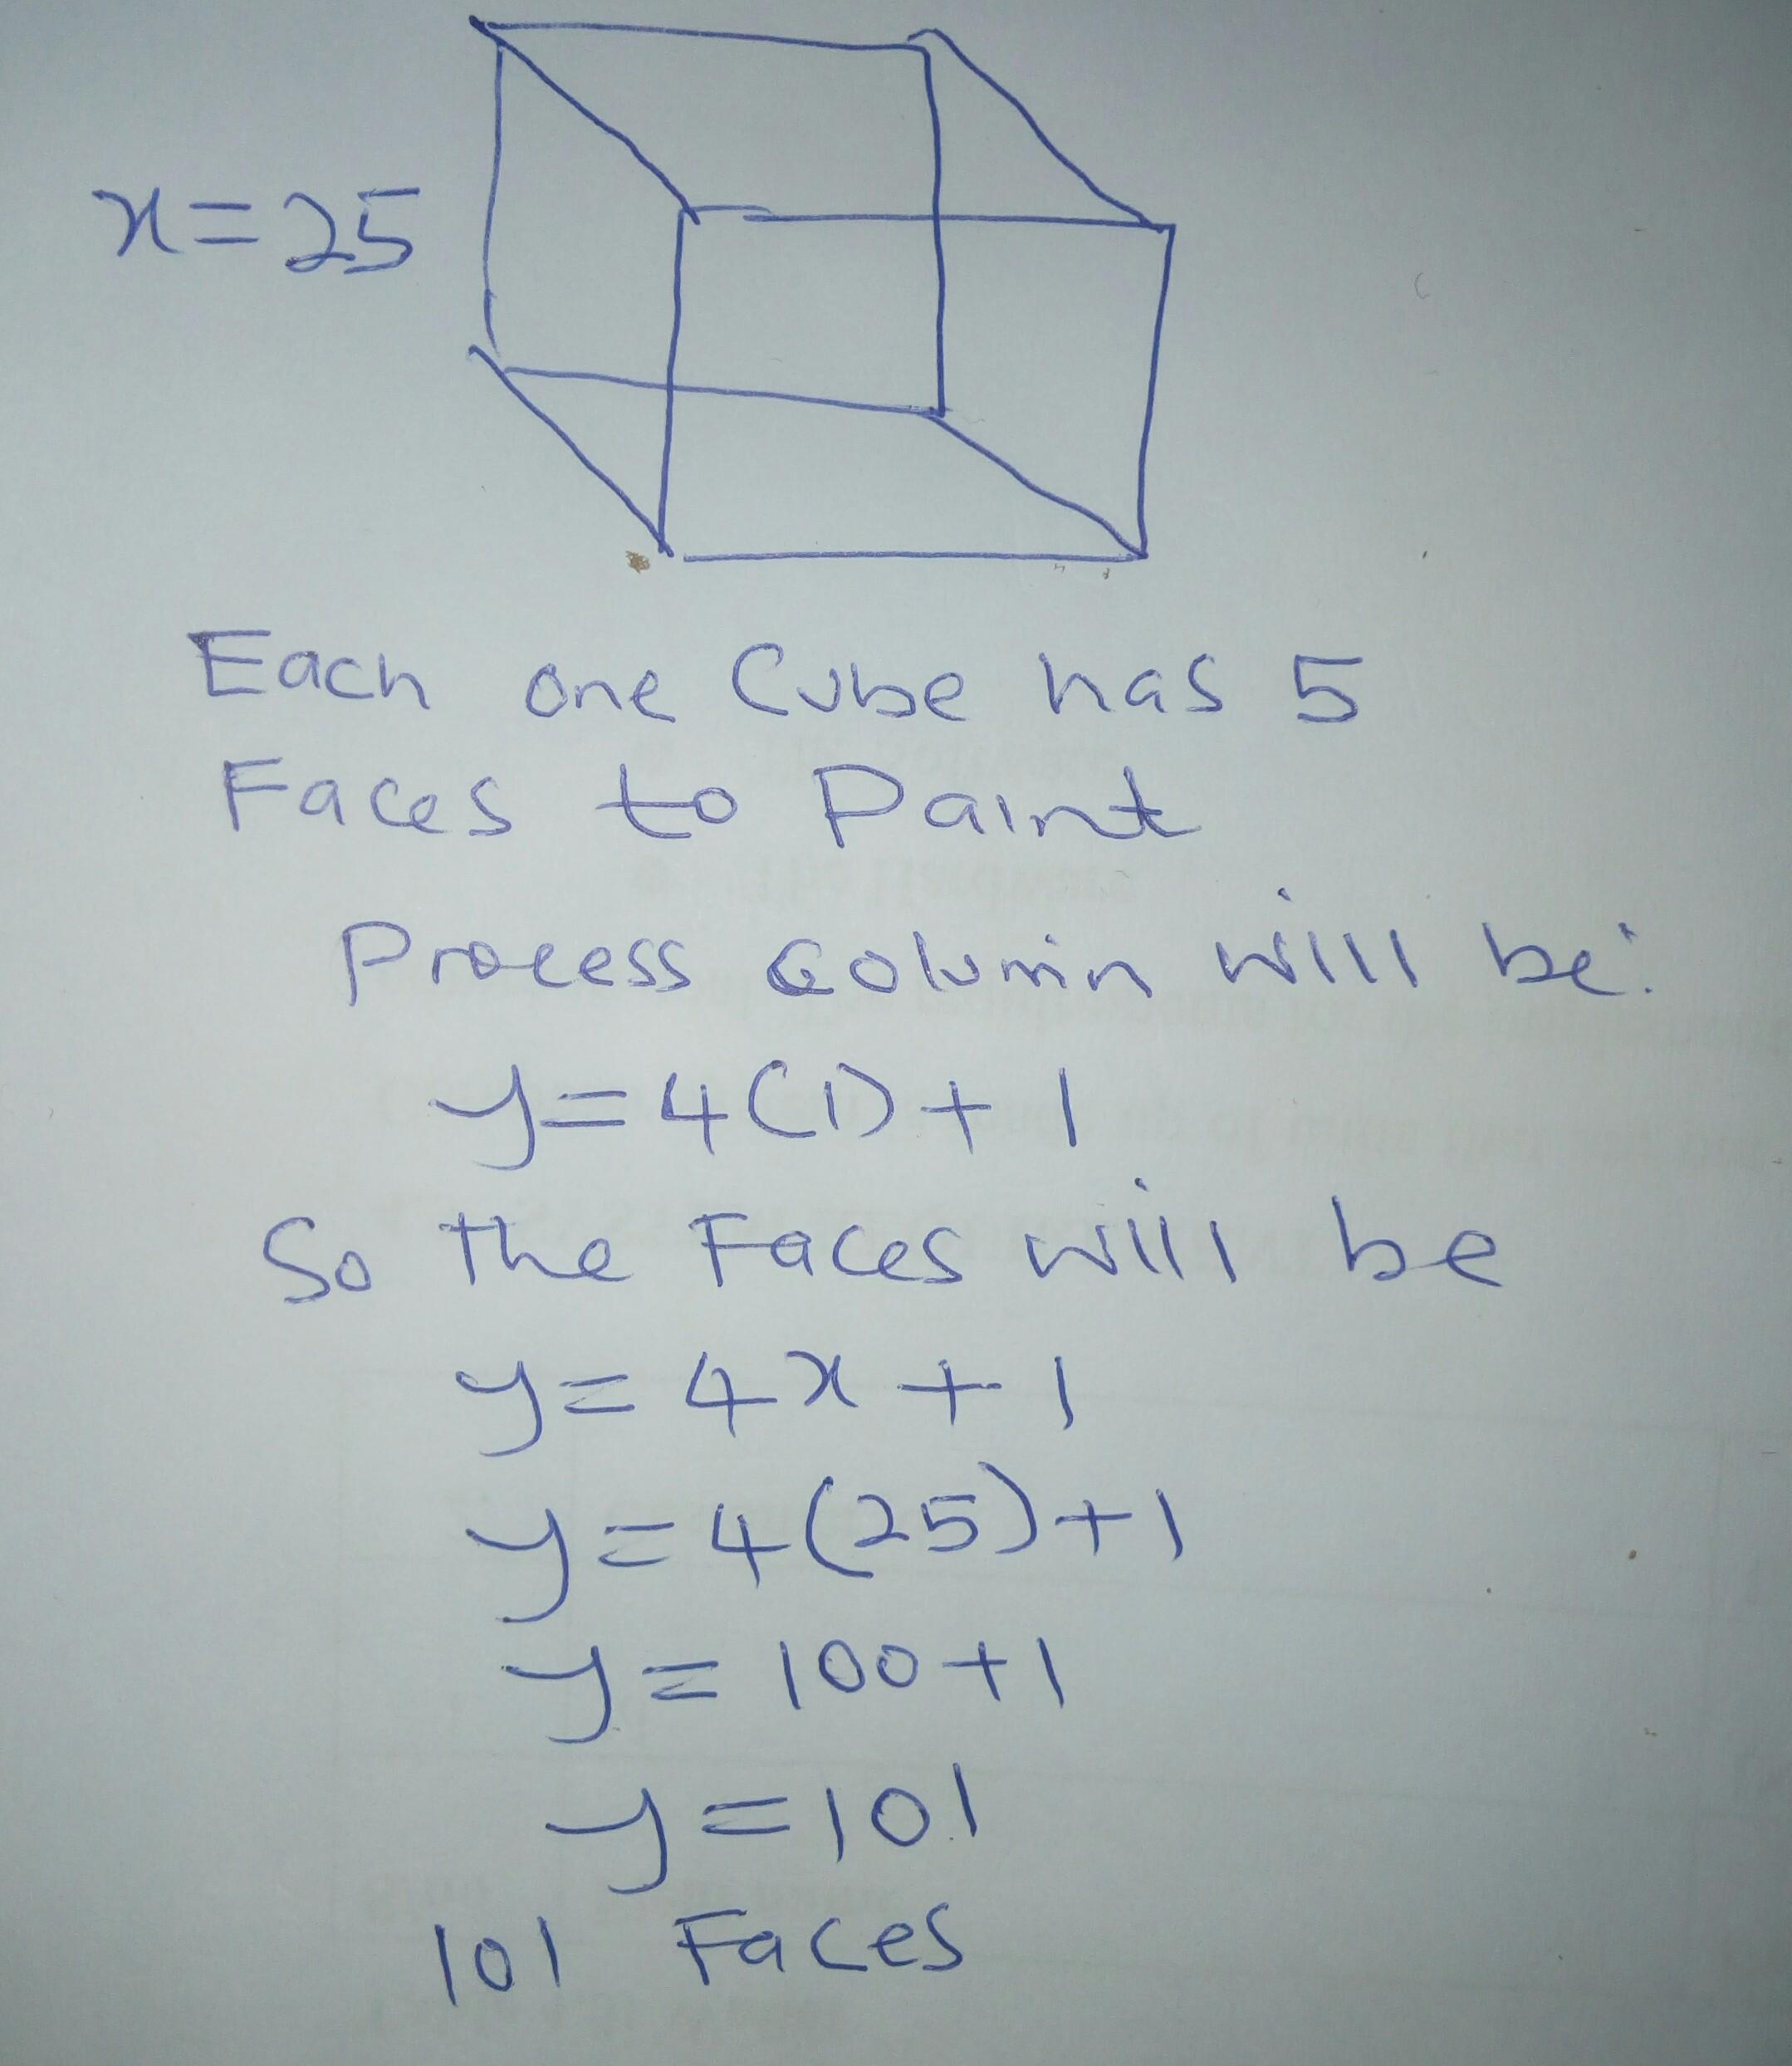 x=25
Each one Cube has 5
Faces to Paint
Process Column will be:
y=4(1)+1
So the Faces will be
y=4x+1
y=4(25)+1
y=100+1
y=101
101 Faces